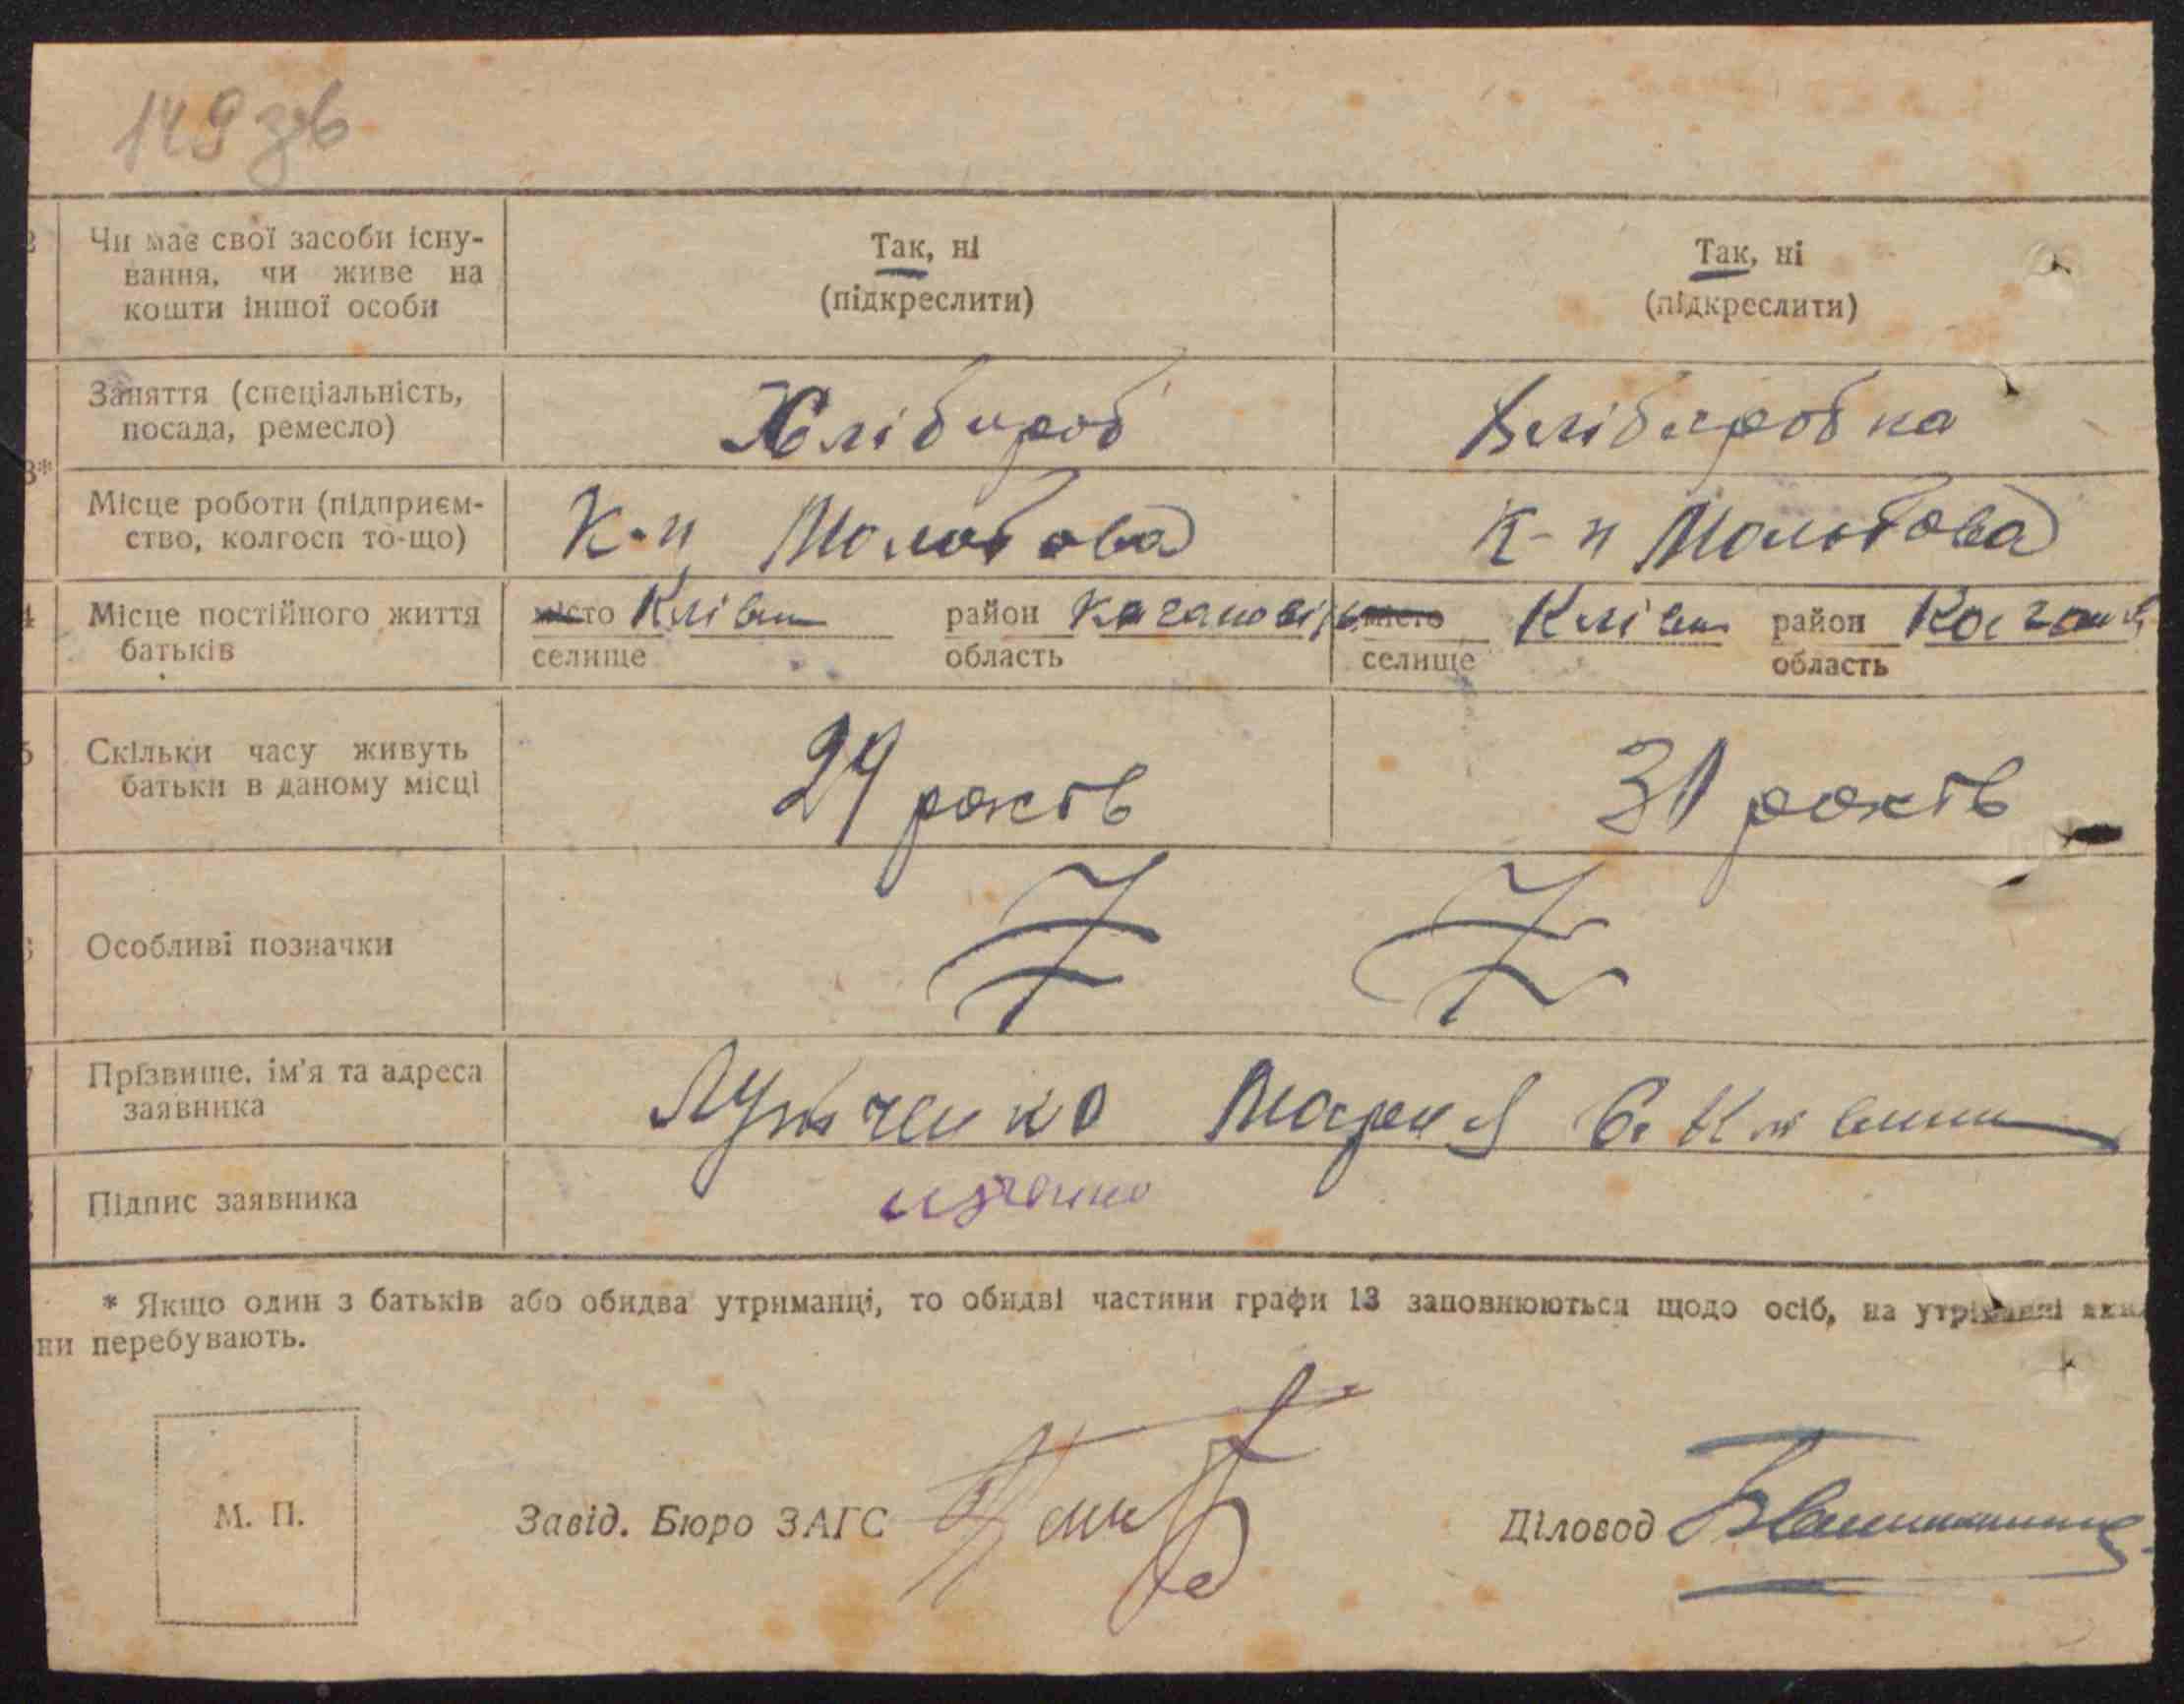 149 зв
2 Чи має свої засоби існу-
вання, чи живе на
кошти іншої особи
Так, ні
(підкреслити)
Так, ні
(підкреслити)
3* Заняття (спеціальність,
посада, ремесло)
Хлібороб
Хлібороб ка
Місце роботи (підприєм-
ство, колгосп то-що)
К-п Молотова
К-п Молотова
4 Місце постійного життя
батьків
місто
селище
район
область
місто
селище
район
область
5 Скільки часу живуть
батьки в даному місці
29 років
31 років
Особливі позначки
7 Прізвище, ім'я та адреса
заявника
Марія с.
Підпис заявника
* Якщо один з батьків або обидва утриманці, то обидві частини графи 13 заповнюються щодо осіб, на утриманні яки
ни перебувають.
М. П.
Завід. Бюро ЗАГС
Діловод